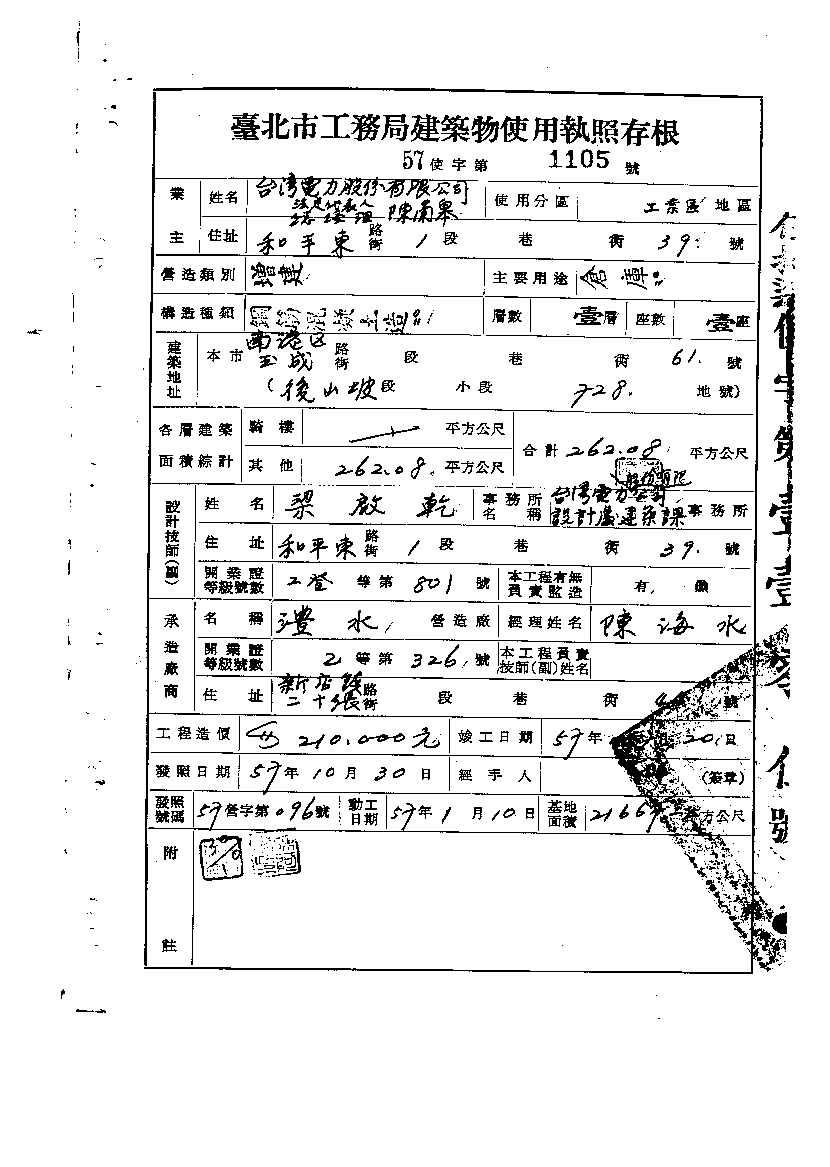 臺北市工務局建築物使用執照存根
57使字第 1105 號
業主 姓名 台湾電力股份有限公司 法定代表人 總經理 陳蘭皋 使用分區 工業區 地區
住址 和平東 路街 1 段 巷 街 39 號
營造類別 增建 主要用途 倉庫
構造種類 鋼筋混凝土造 層數 壹層 座數 壹座
建築地址 本市 南港区 玉成 路街 段 巷 街 61 號
(後山坡段 小段 728 地號)
各層建築面積綜計 騎樓 平方公尺 合計 262.08 平方公尺
其他 262.08 平方公尺
設計技師(副) 姓名 梁啟乾 事務所名稱 台湾電力公司 股份有限 設計處建築課 事務所
住址 和平東 路街 1 段 巷 街 39 號
開業證等級號數 等第 801 號 本工程有無負責監造 有
承造廠商 名稱 灃水 營造廠 經理姓名 陳海水
開業證等級號數 乙 等第 326 號 本工程負責技師(副)姓名
住址 新店鎮 二十張 路街 段 巷 街 號
工程造價 210.000元 竣工日期 57年 20日
發照日期 57年10月30日 經手人 (簽章)
發照號碼 57營字第096號 動工日期 57年1月10日 基地面積 平方公尺
附註